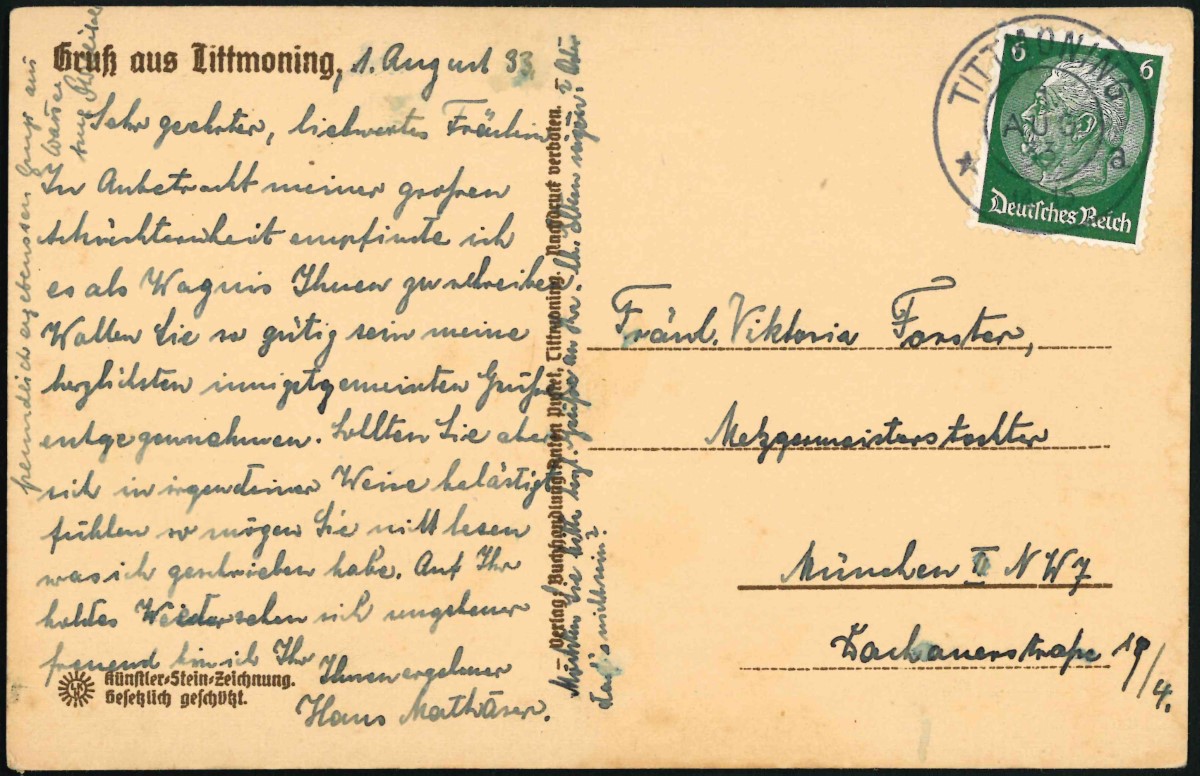 Gruß aus Tittmoning, 1. August 33
Sehr geehrtes, liebwertes Fräulein
In Anbetracht meiner großen
Schüchternheit empfinde ich
es als Wagnis Ihnen zu schreiben.
Wollen Sie so gütig sein meine
herzlichsten innigstgemeinten Grüße
entgegennehmen. Sollten Sie aber
sich in irgendeiner Weise belästigt
fühlen so mögen Sie nicht lesen
was ich geschrieben habe. Auf Ihr
holdes Wiedersehen sich ungeheuer
freuend bin ich Ihr
Ihnen ergebener
Hans Mathäser.
freundlich ergebensten Gruß aus
Möchten Sie bitte Grüße an Ihre Eltern
das nicht sein?
Künstler-Stein-Zeichnung.
Gesetzlich geschützt.
Verlag: Buchhandlung Anton Pustet, Tittmoning. Nachdruck verboten.
TITTMONING
AUG
33
a
6 6
Deutsches Reich
Fräul. Viktoria Forster,
Metzgermeisterstochter
München II NW7
Dachauerstraße 19/4.